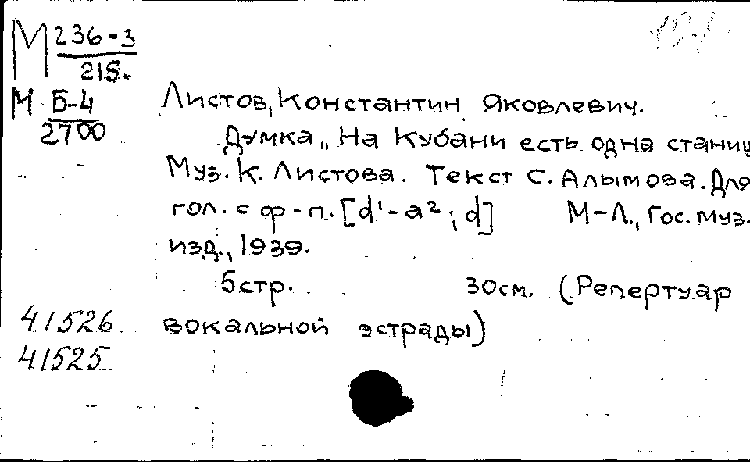 М 236-3
215.
М Б-4
2700
Листов, Константин Яковлевич.
Думка "На Кубани есть одна станиц
Муз. К. Листова. Текст С. Алымова. Для
гол. с ф-п. [d¹-a²; d] М-Л., Гос. муз.
изд., 1939.
5стр. 30см. (Репертуар
вокальной эстрады)
41526
41525